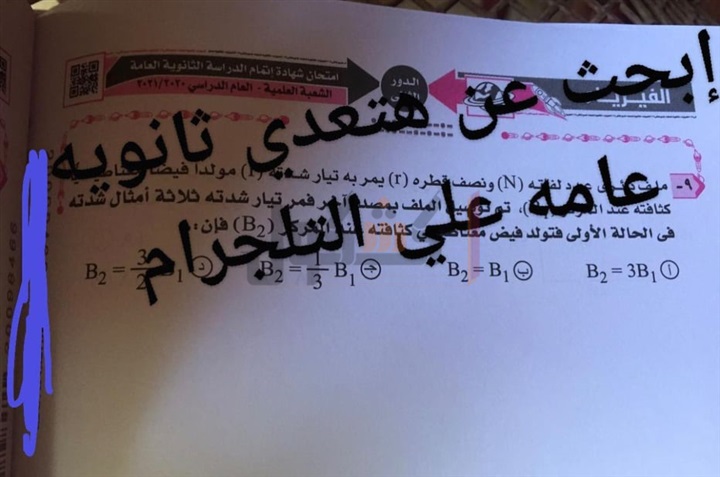 امتحان شهادة إتمام الدراسة الثانوية العامة
الشعبة العلمية - العام الدراسي ٢٠٢١/٢٠٢٠
الدور
إبحث عن هتعدي ثانويه
عامه علي التلجرام
٩- ملف عدد لفاته (N) ونصف قطره (r) يمر به تيار شدته (I) مولدا فيضا
كثافته عند، توصيل الملف بمصدر آخر فمر تيار شدته ثلاثة أمثال شدته
فى الحالة الأولى فتولد فيض كثافته عند المركز (B₂) فإن:
أ B₂ = 3B₁
ب B₂ = B₁
ج B₂ = 1/3 B₁
د B₂ = 3/2 B₁